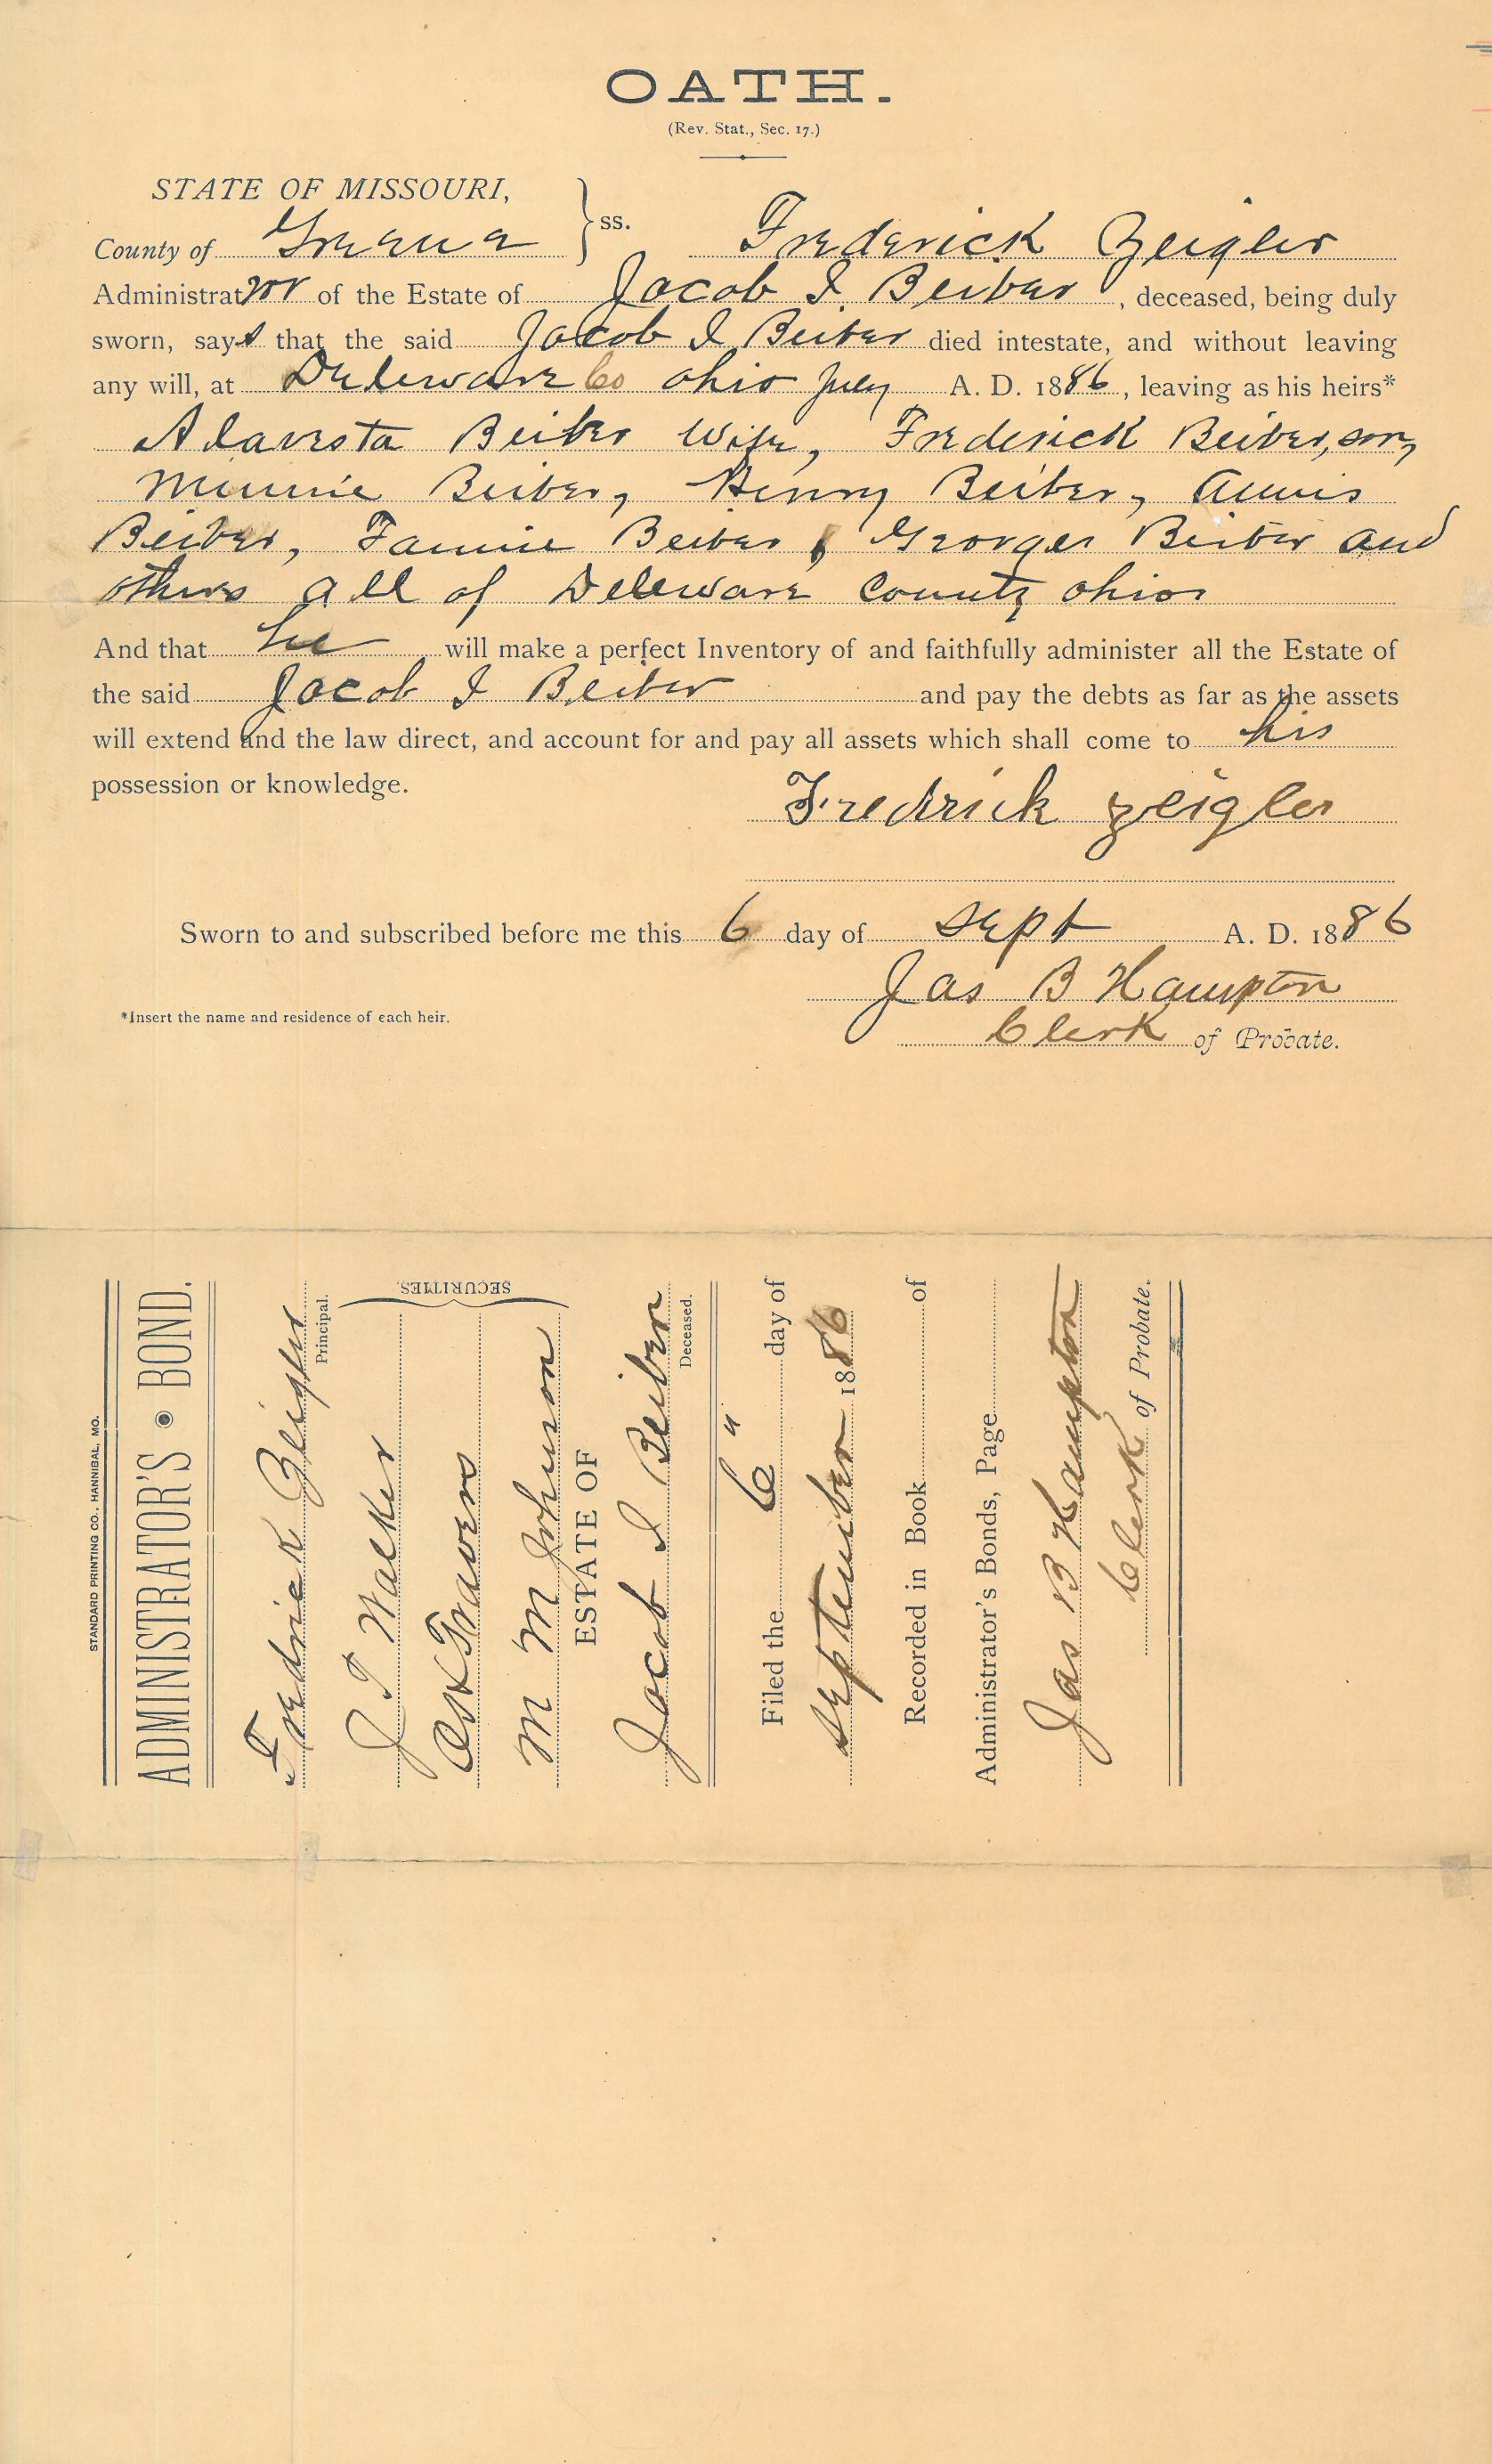 OATH.
(Rev. Stat., Sec. 17.)
STATE OF MISSOURI,
County of Greene } ss. Frederick Zeigler
Administrator of the Estate of Jacob I. Beiber, deceased, being duly
sworn, says that the said Jacob I Beiber died intestate, and without leaving
any will, at Deleware Co Ohio July A. D. 1886, leaving as his heirs*
Beiber Wife, Frederick Beiber, son,
Minnie Beiber, Henry Beiber, Annis
Beiber, Fannie Beiber, Georger Beiber and
others all of Deleware County Ohio
And that he will make a perfect Inventory of and faithfully administer all the Estate of
the said Jacob I Beiber and pay the debts as far as the assets
will extend and the law direct, and account for and pay all assets which shall come to his
possession or knowledge.
Fredrick Zeigler
Sworn to and subscribed before me this 6 day of Sept A. D. 1886
Jas B Hampton
*Insert the name and residence of each heir.
Clerk of Probate.
STANDARD PRINTING CO., HANNIBAL, MO.
ADMINISTRATOR'S BOND.
Fredrick Zeigler
Principal.
J T Walker
Travers
M M Johnson
SECURITIES.
ESTATE OF
Jacob I Beiber
Deceased.
Filed the 6" day of
September 1886
Recorded in Book of
Administrator's Bonds, Page
Jas B Hampton
Clerk of Probate.